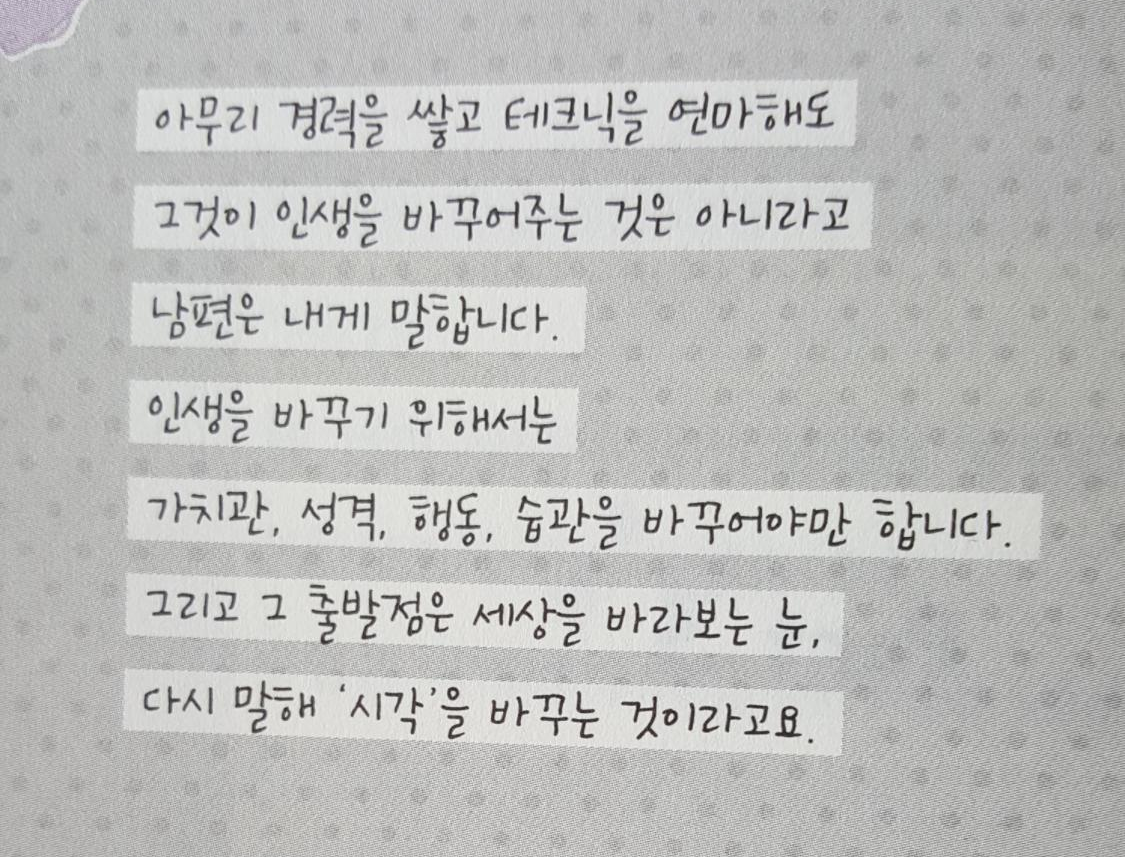 아무리 경력을 쌓고 테크닉을 연마해도
그것이 인생을 바꾸어주는 것은 아니라고
남편은 내게 말합니다.
인생을 바꾸기 위해서는
가치관, 성격, 행동, 습관을 바꾸어야만 합니다.
그리고 그 출발점은 세상을 바라보는 눈,
다시 말해 '시각'을 바꾸는 것이라고요.